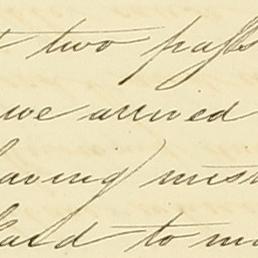 two pass
we arrived
having mis
to m